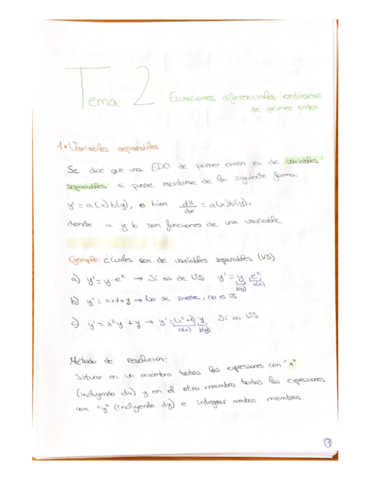 Tema 2: Ecuaciones diferenciales ordinarias
de primer orden
1. Variables separables
Se dice que una EDO de primer orden es de variables
separables si puede escribirse de la siguiente forma:
y' = a(x)b(y), o bien dy/dx = a(x)b(y),
donde a y b son funciones de una variable
Ejemplo: ¿Cuáles son de variables separables (VS)
a) y' = y·eˣ → Sí es de VS y' = y eˣ
b(y) a(x)
b) y' = x+1+y → No se puede, no es VS
c) y' = x²y + y → y' = (x²+1) y Sí es VS
a(x) b(y)
Método de resolución:
Situar en un miembro todas las expresiones con "x"
(incluyendo dx) y en el otro miembro todas las expresiones
con "y" (incluyendo dy) e integrar ambos miembros
1